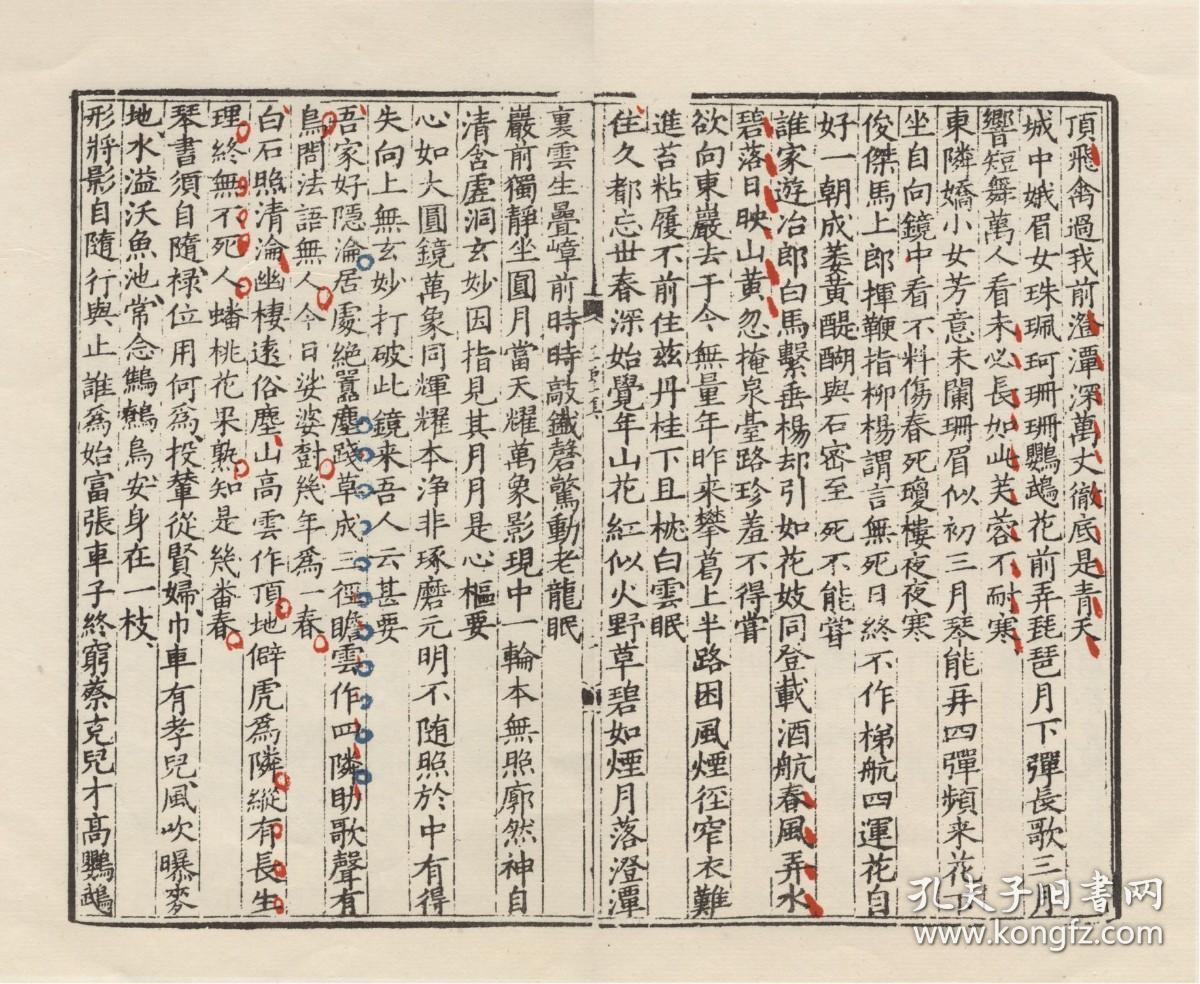 頂飛禽過我前澄潭深萬丈徹底是青天
城中娥眉女珠珮珂珊珊鸚鵡花前弄琵琶月下彈長歌三月
響短舞萬人看未必長如此芙蓉不耐寒
東隣嬌小女芳意未闌珊眉似初三月琴能再四彈頻来花下
坐自向鏡中看不料傷春死瓊樓夜夜寒
俊傑馬上郎揮鞭指柳楊謂言無死日終不作梯航四運花自
好一朝成萎黃醍醐與石蜜至死不能嘗
誰家遊冶郎白馬繫垂楊却引如花妓同登載酒航春風弄水
碧落日映山黃忽掩泉臺路珍羞不得嘗
欲向東巖去于今無量年昨来攀葛上半路困風煙徑窄衣難
進苔粘履不前住茲丹桂下且枕白雲眠
住久都忘世春深始覺年山花紅似火野草碧如煙月落澄潭
裏雲生疊嶂前時時敲鐵磬驚動老龍眠
巖前獨靜坐圓月當天耀萬象影現中一輪本無照廓然神自
清含虛洞玄妙因指見其月月是心樞要
心如大圓鏡萬象同輝耀本浄非琢磨元明不随照於中有得
失向上無玄妙打破此鏡来吾人云甚要
吾家好隱淪居處絶囂塵踐草成三徑瞻雲作四隣助歌聲有
鳥問法語無人今日娑婆對幾年爲一春
白石照清淪幽棲遠俗塵山高雲作頂地僻虎爲隣縱有長生
理終無不死人蟠桃花果熟知是幾番春
琴書須自隨禄位用何爲投輦從賢婦巾車有孝兒風吹曝麥
地水溢沃魚池常念鷦鷯鳥安身在一枝
形將影自随行與止誰爲始富張車子終窮蔡克兒才高鸚鵡
孔夫子旧書网
www.kongfz.com